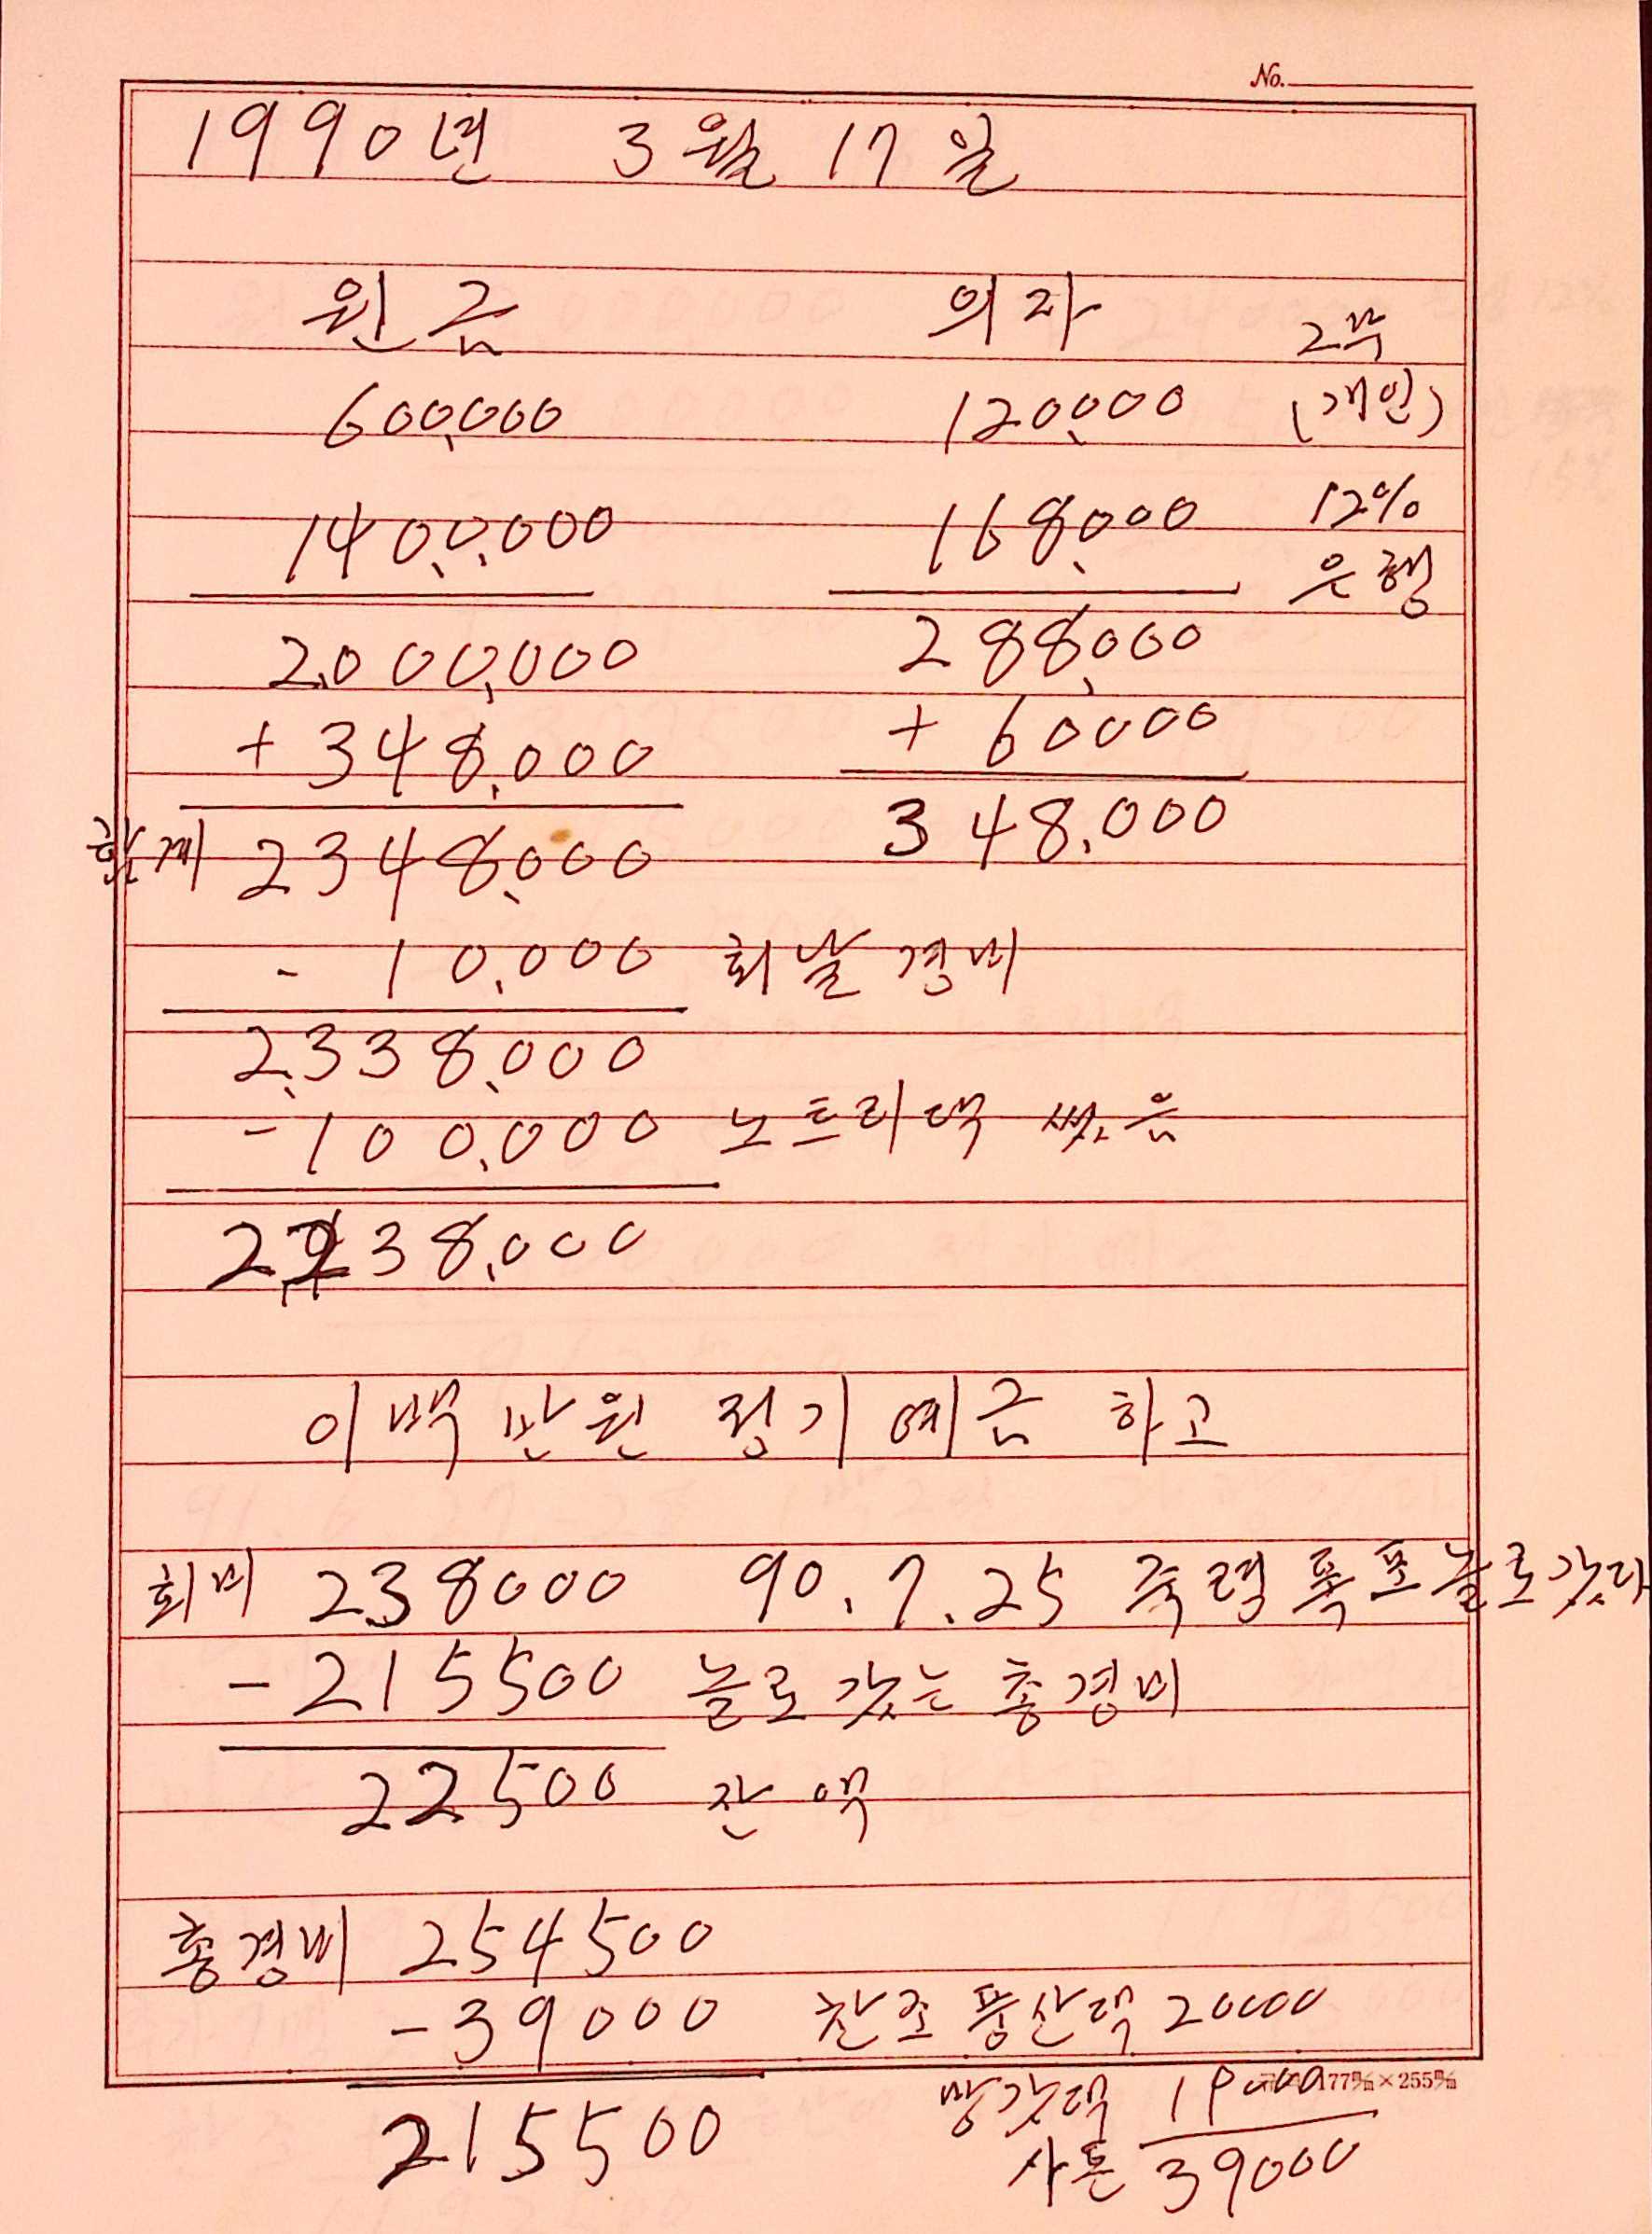 No.
1990년 3월 17일
원금 의자 2부
600,000 120,000 (개인)
1400,000 168,000 12%
은행
2,000,000 288,000
+ 348,000 + 60000
합계 2348,000 348,000
- 10,000 회날경비
2,338,000
- 100,000 노트리댁 썼음
2238,000
이백만원 정기예금 하고
회비 238000 90.7.25 죽령폭포놀로갓다
- 215500 놀로갓는총경비
22500 잔액
총경비 254500
- 39000 찬조 풍산댁 20000
215500 망갓댁 19000
사돈 39000
177㎜×255㎜